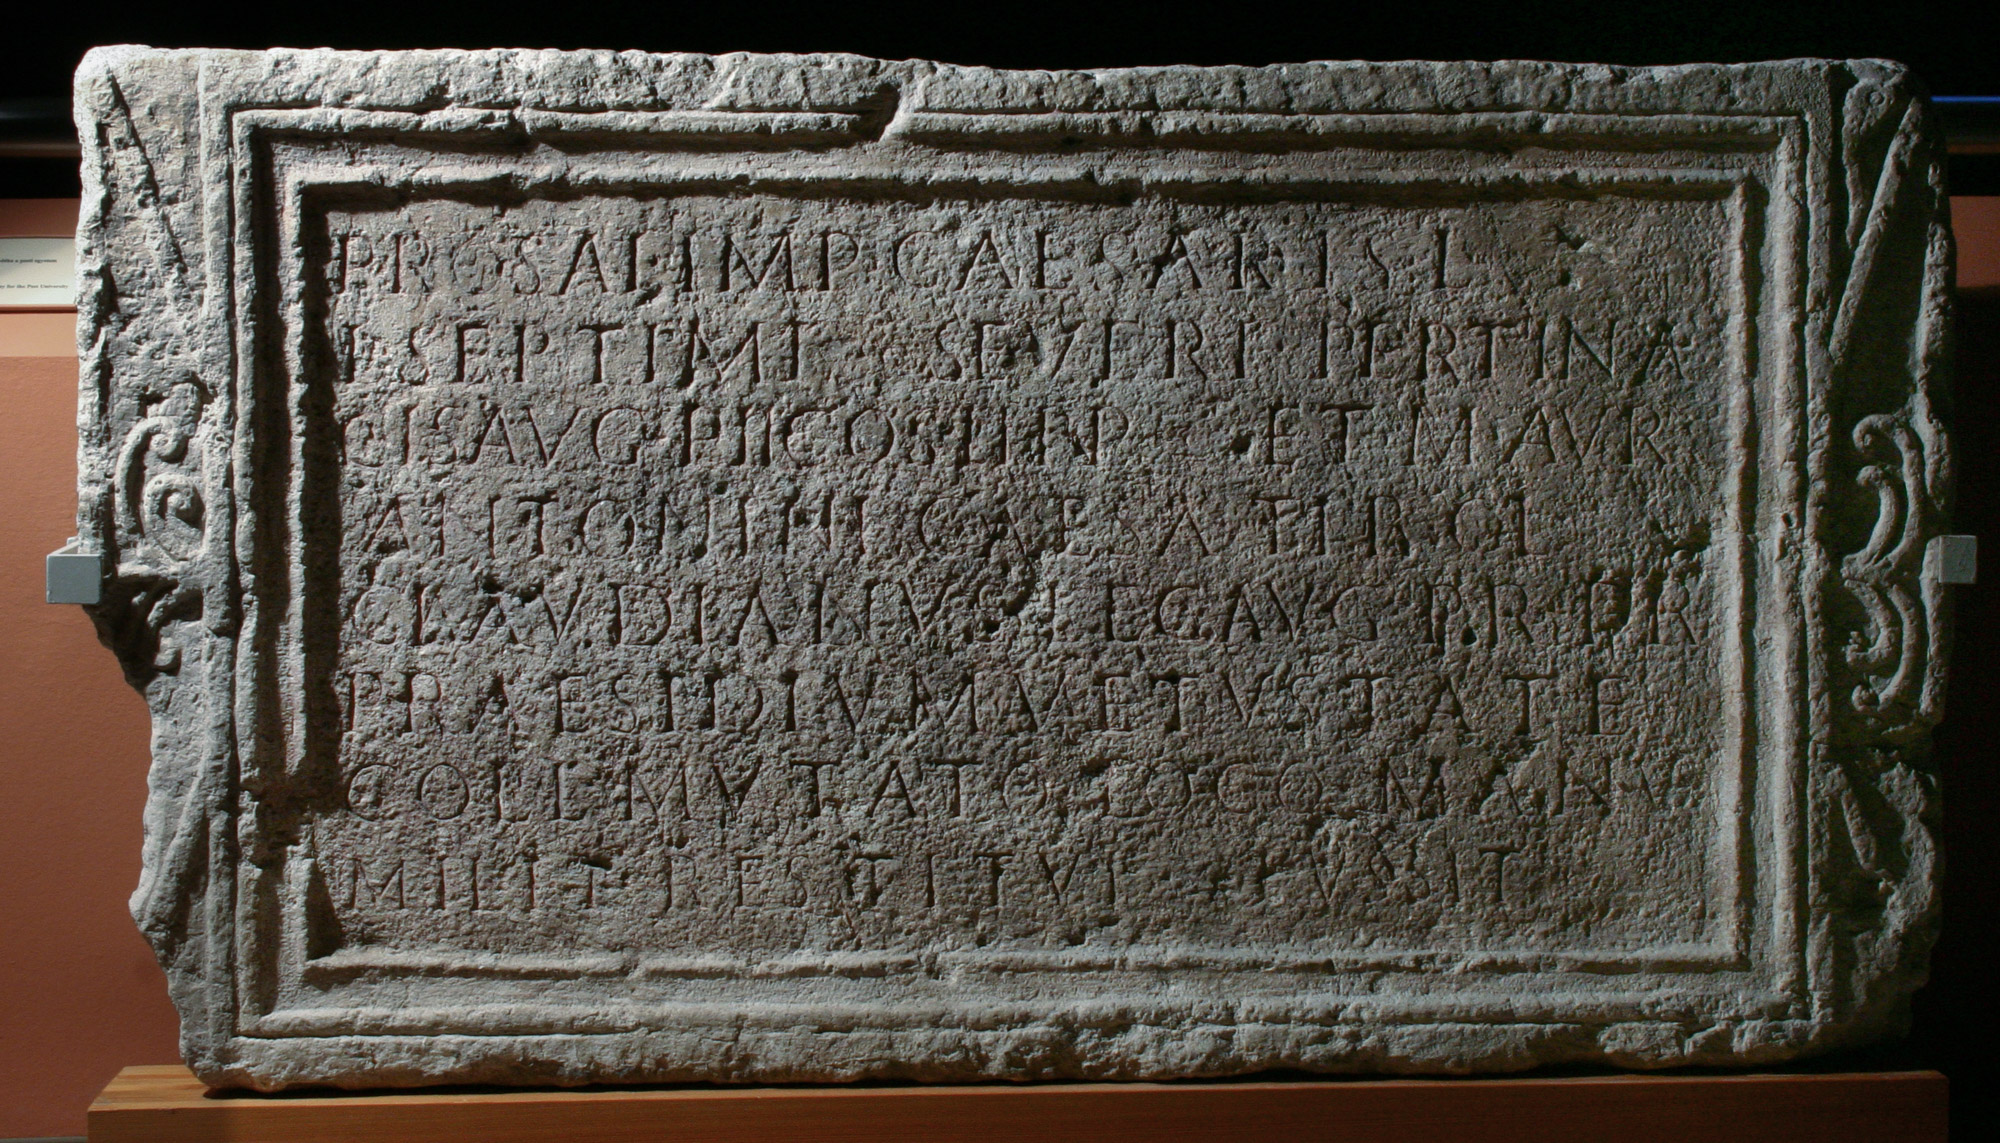 PRO SAL IMP CAESARIS L
SEPTIMI SEVERI PERTINA
CIS AVG PII COS II IN P C ET M AVR
ANTONINI CAESA TIB CL
CLAVDIANVS LEG AVG PR PR
PRAESIDIVM VETVSTATE
COLL MVTATO LOCO MANV
MILIT RESTITVI IVSSIT